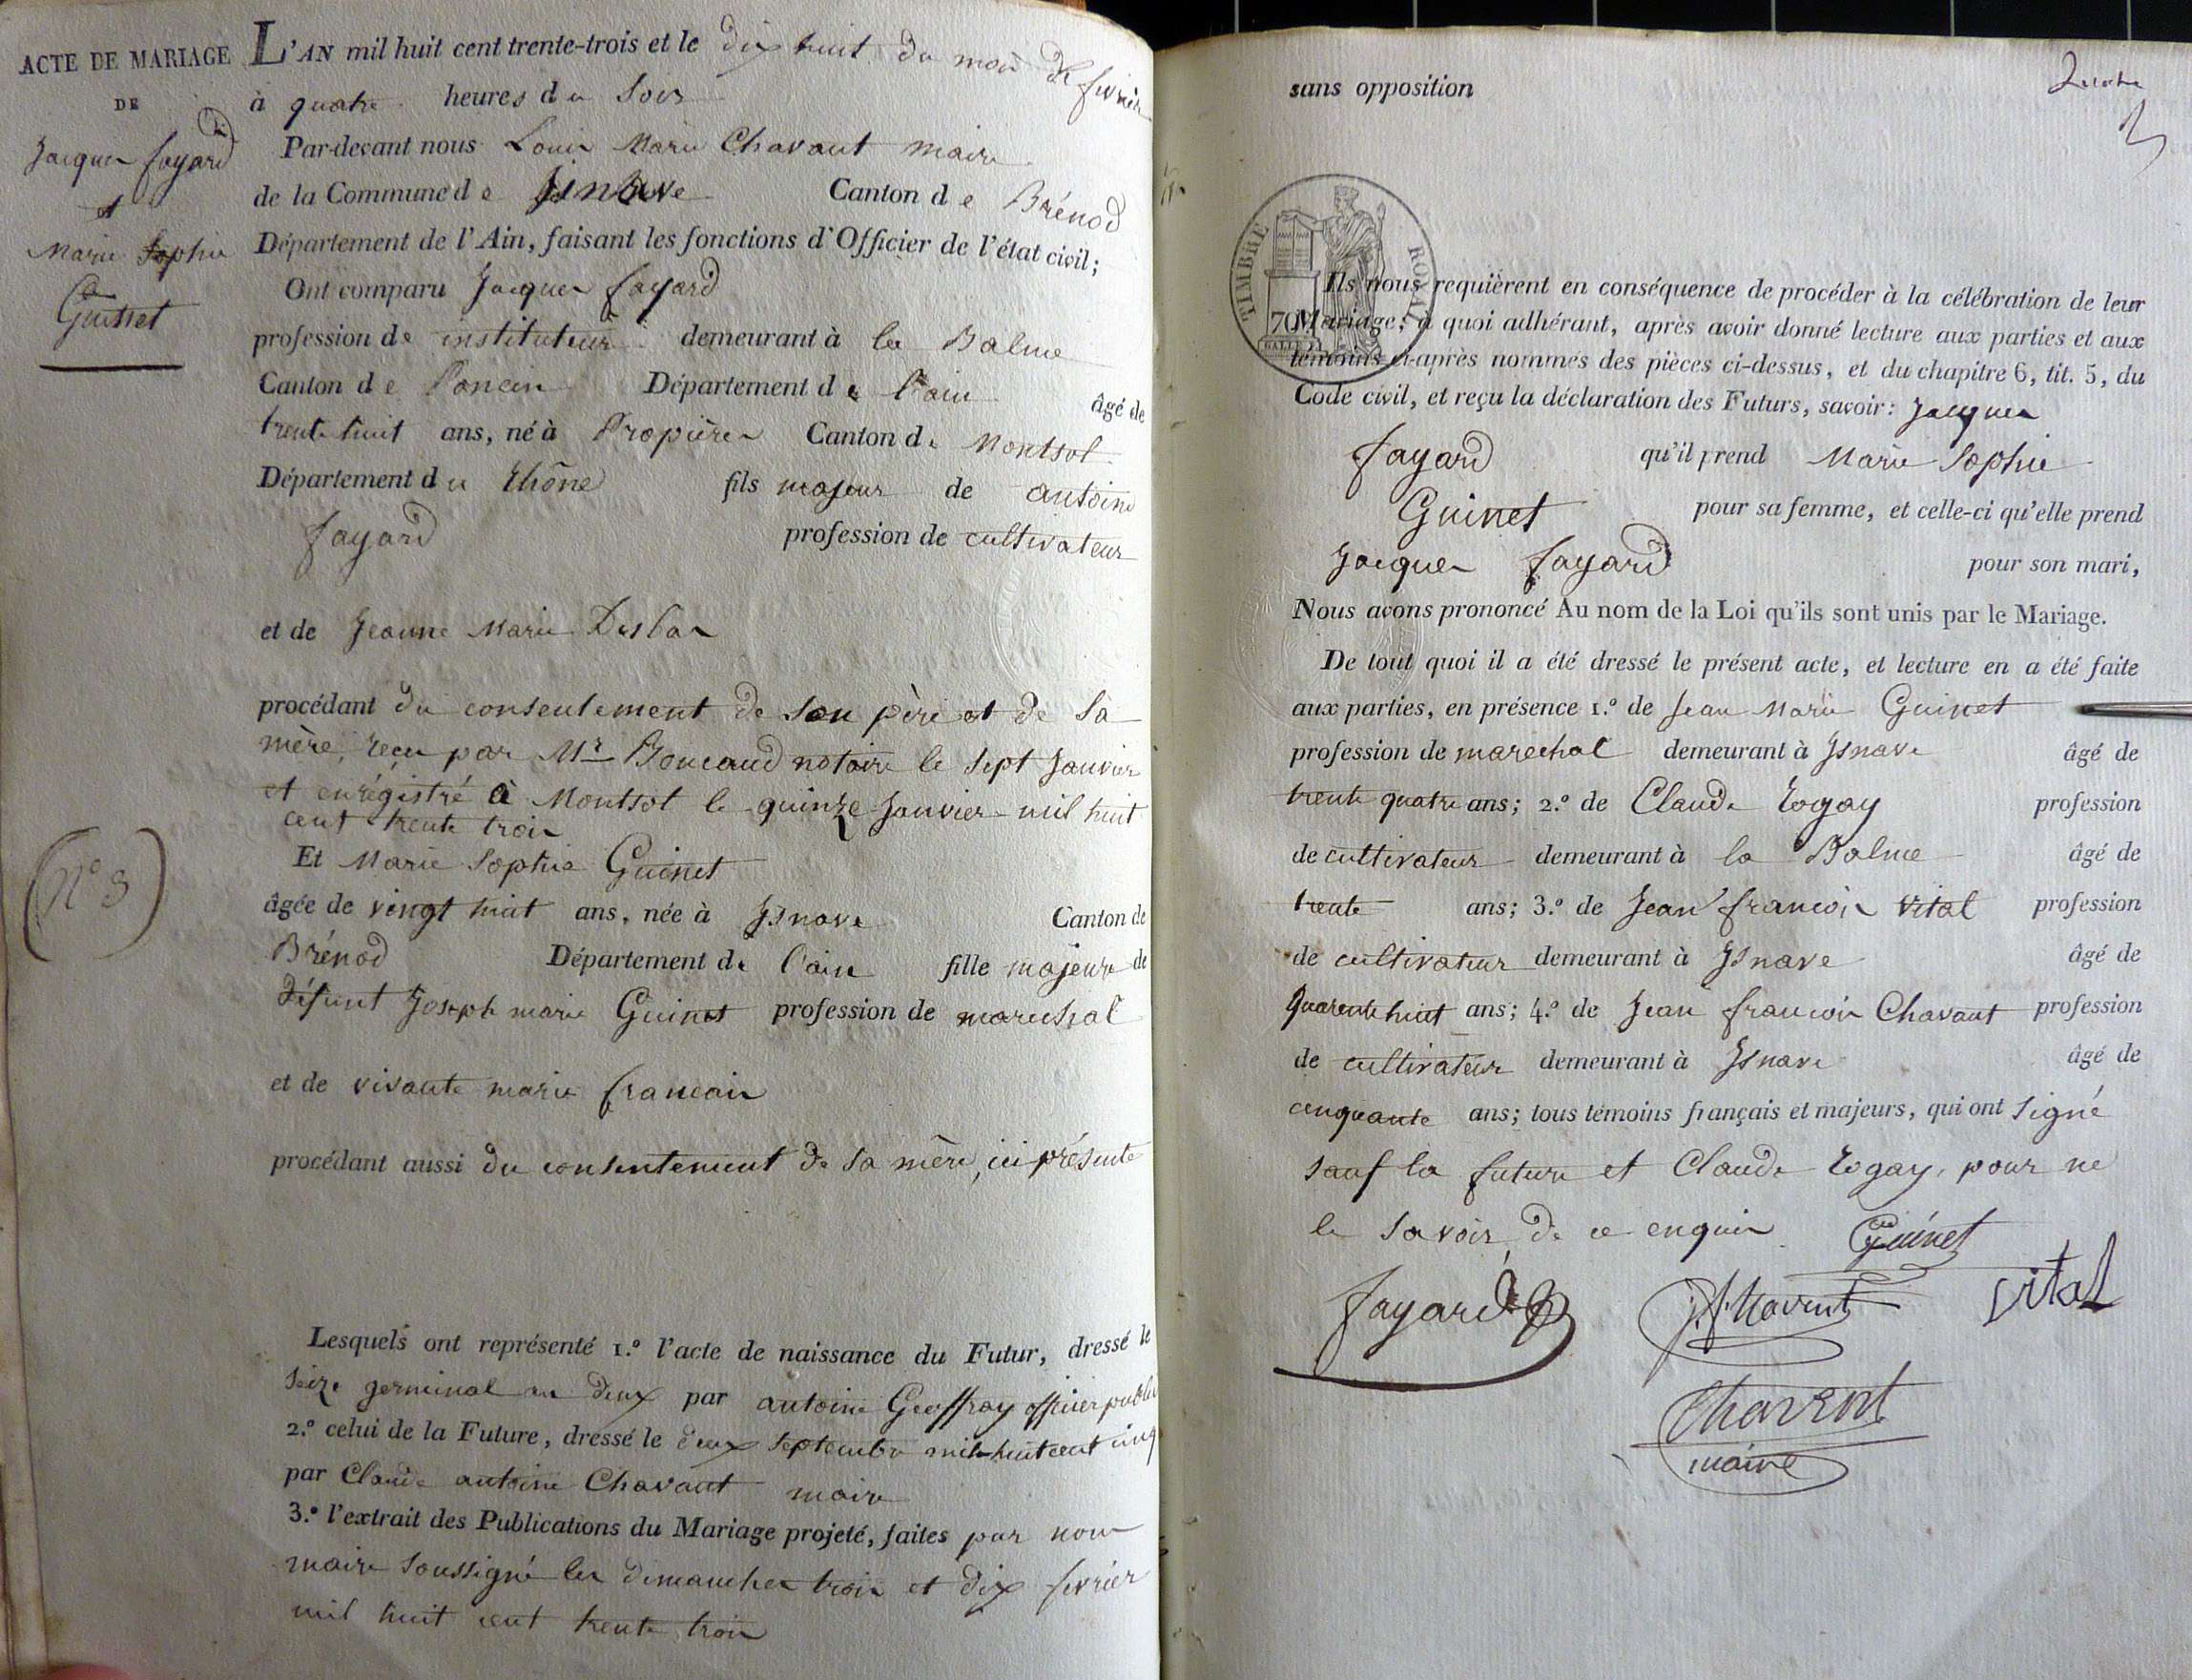 ACTE DE MARIAGE
DE
Jacques fayard
et
Marie Sophie
Guinet
N° 3
L'AN mil huit cent trente-trois et le dix huit du mois de février
à quatre heures du Soir
Par-devant nous Louis Marie Chavant maire
de la Commune de Isnave Canton de Brénod
Département de l'Ain, faisant les fonctions d'Officier de l'état civil;
Ont comparu Jacques fayard
profession de instituteur demeurant à la Balme
Canton de Poncin Département de l'ain âgé de
trente huit ans, né à Propières Canton de Montsol
Département du Rhône fils majeur de antoine
fayard profession de cultivateur
et de Jeanne Marie Desbas
procédant du consentement de son père et de sa
mère, reçu par Mr notaire le sept Janvier
et enrégistré à Montsol le quinze Janvier mil huit
cent trente trois
Et Marie Sophie Guinet
âgée de vingt huit ans, née à Isnave Canton de
Brénod Département de l'ain fille majeure de
défunt Joseph marie Guinet profession de marechal
et de vivante marie francois
procédant aussi du consentement de sa mère, ici présente
Lesquels ont représenté 1.° l'acte de naissance du Futur, dressé le
seize germinal an deux par antoine Geoffray officier public
2.° celui de la Future, dressé le deux septembre mil huit cent cinq
par Claude antoine Chavant maire
3.° l'extrait des Publications du Mariage projeté, faites par nous
maire soussigné les dimanches trois et dix février
mil huit cent trente trois
sans opposition
TIMBRE ROYAL
70
Ils nous requièrent en conséquence de procéder à la célébration de leur
Mariage; à quoi adhérant, après avoir donné lecture aux parties et aux
témoins ci-après nommés des pièces ci-dessus, et du chapitre 6, tit. 5, du
Code civil, et reçu la déclaration des Futurs, savoir: Jacques
fayard qu'il prend Marie Sophie
Guinet pour sa femme, et celle-ci qu'elle prend
Jacques fayard pour son mari,
Nous avons prononcé Au nom de la Loi qu'ils sont unis par le Mariage.
De tout quoi il a été dressé le présent acte, et lecture en a été faite
aux parties, en présence 1.° de Jean Marie Guinet
profession de marechal demeurant à Isnave âgé de
trente quatre ans; 2.° de Claude Rogay profession
de cultivateur demeurant à la Balme âgé de
trente ans; 3.° de Jean francois vital profession
de cultivateur demeurant à Isnave âgé de
quarente huit ans; 4.° de Jean francois Chavant profession
de cultivateur demeurant à Isnave âgé de
cinquante ans; tous témoins français et majeurs, qui ont signé
sauf la future et Claude Rogay, pour ne
le savoir, de ce enquis Guinet
fayard vital
Chavent
maire